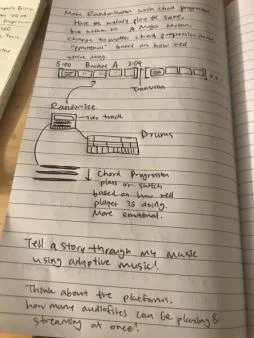 More Randomization with chord progressions
Have the melody play the same,
but switch to A Major
change to another chord progression more
"emotional" based on how well
you're doing.
5:00 3:04
Transition
Randomize
solo track
Drums
Chord Progression
plays or switch
based on how well
player is doing.
More emotional.
Tell a story through my music
using adaptive music!
Think about the platforms,
how many audiofiles can be playing &
streaming at once!